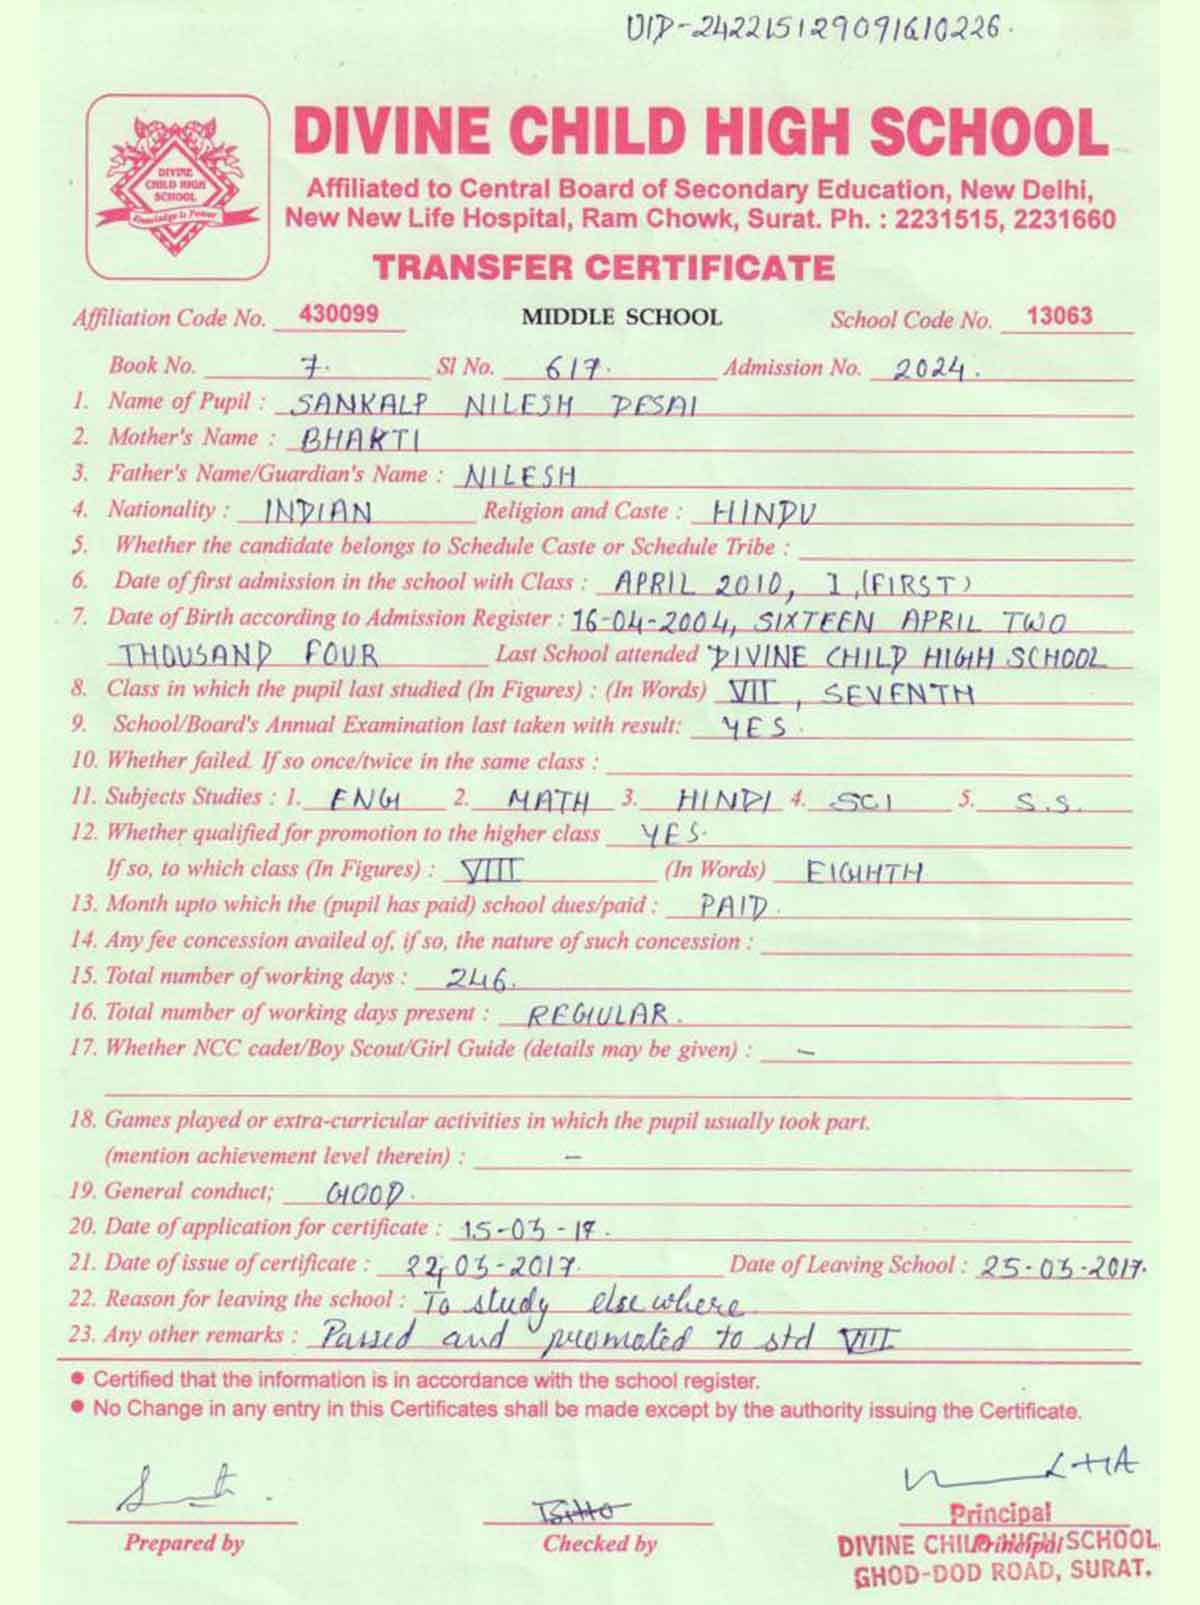 UID-242215129091610226.
DIVINE CHILD HIGH SCHOOL
Knowledge is Power
DIVINE CHILD HIGH SCHOOL
Affiliated to Central Board of Secondary Education, New Delhi,
New New Life Hospital, Ram Chowk, Surat. Ph. : 2231515, 2231660
TRANSFER CERTIFICATE
Affiliation Code No. 430099 MIDDLE SCHOOL School Code No. 13063
Book No. 7. Sl No. 617. Admission No. 2024.
1. Name of Pupil : SANKALP NILESH DESAI
2. Mother's Name : BHAKTI
3. Father's Name/Guardian's Name : NILESH
4. Nationality : INDIAN Religion and Caste : HINDU
5. Whether the candidate belongs to Schedule Caste or Schedule Tribe :
6. Date of first admission in the school with Class : APRIL 2010, I,(FIRST)
7. Date of Birth according to Admission Register : 16-04-2004, SIXTEEN APRIL TWO
THOUSAND FOUR Last School attended DIVINE CHILD HIGH SCHOOL
8. Class in which the pupil last studied (In Figures) : (In Words) VII, SEVENTH
9. School/Board's Annual Examination last taken with result: YES.
10. Whether failed. If so once/twice in the same class :
11. Subjects Studies : 1. ENG 2. MATH 3. HINDI 4. SCI 5. S.S.
12. Whether qualified for promotion to the higher class YES.
If so, to which class (In Figures) : VIII (In Words) EIGHTH
13. Month upto which the (pupil has paid) school dues/paid : PAID.
14. Any fee concession availed of, if so, the nature of such concession :
15. Total number of working days : 246.
16. Total number of working days present : REGULAR.
17. Whether NCC cadet/Boy Scout/Girl Guide (details may be given) : –
18. Games played or extra-curricular activities in which the pupil usually took part.
(mention achievement level therein) : –
19. General conduct; GOOD.
20. Date of application for certificate : 15-03-17.
21. Date of issue of certificate : 22,03-2017. Date of Leaving School : 25-03-2017.
22. Reason for leaving the school : To study elsewhere
23. Any other remarks : Passed and promoted to std VIII
● Certified that the information is in accordance with the school register.
● No Change in any entry in this Certificates shall be made except by the authority issuing the Certificate.
Prepared by Checked by Principal
Principal
DIVINE CHILD HIGH SCHOOL,
GHOD-DOD ROAD, SURAT.